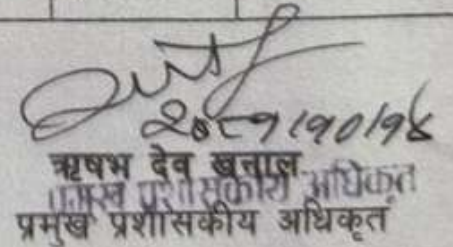 २०८१/१०/१४
ऋषभ देव खनाल
प्रमुख प्रशासकीय अधिकृत
प्रमुख प्रशासकीय अधिकृत